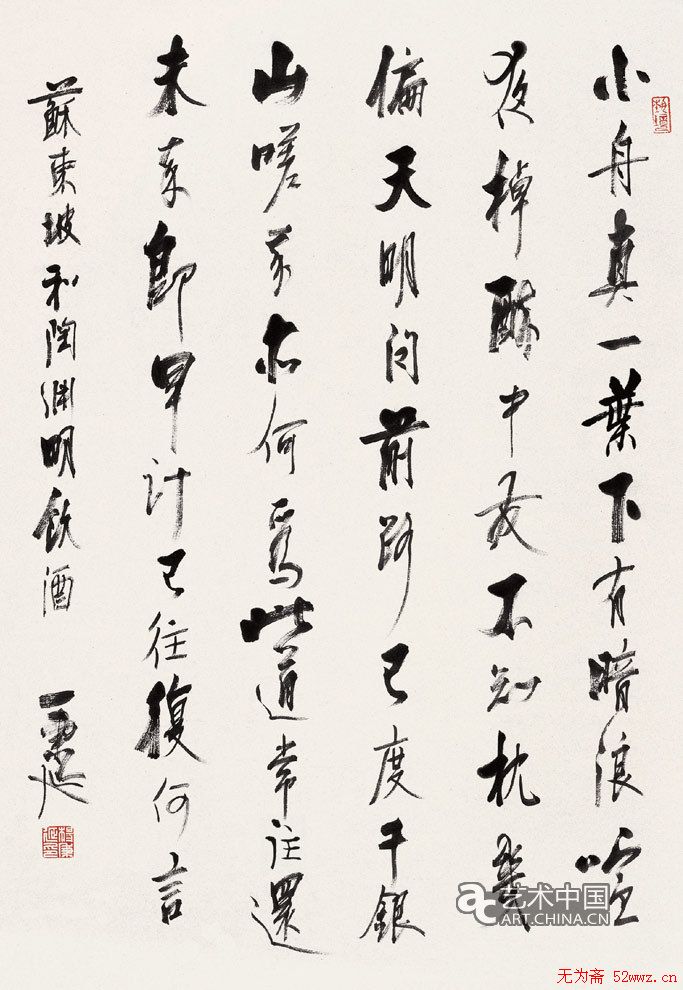 小舟真一葉下有暗浪喧
夜棹醉中發不知枕幾
偏天明問前路已度千銀
山嗟我亦何爲此道常往還
未來即早計已往復何言
蘇東坡和陶淵明飲酒
艺术中国
ART.CHINA.CN
无为斋 52wwz.cn